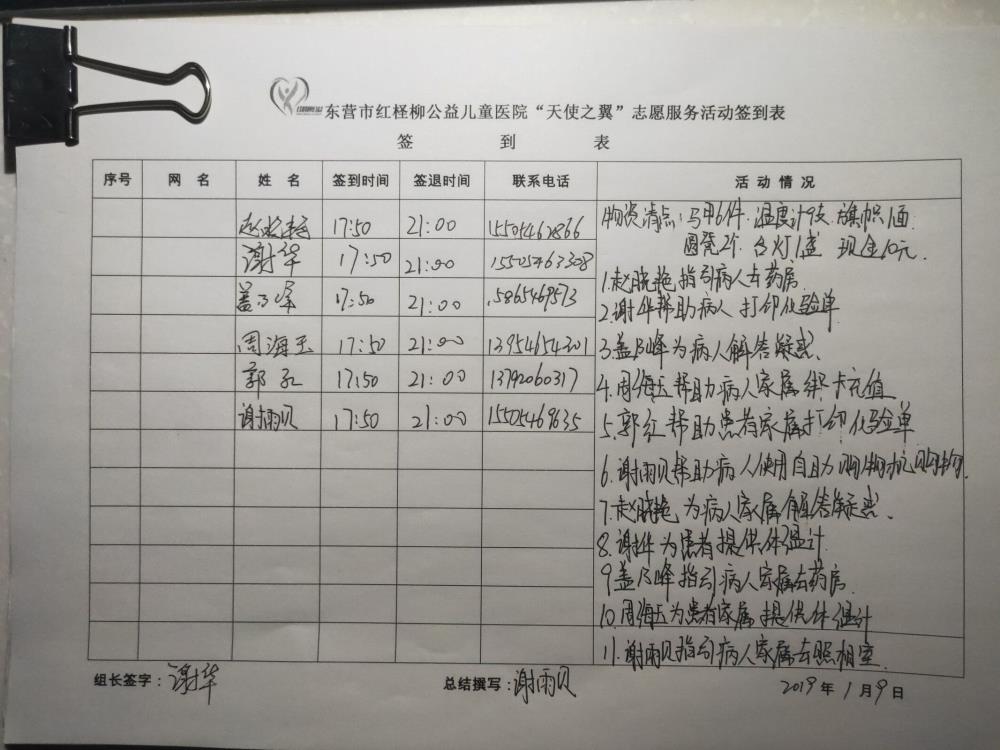 东营市红柽柳公益儿童医院“天使之翼”志愿服务活动签到表
签 到 表
序号 网 名 姓 名 签到时间 签退时间 联系电话 活 动 情 况
物资清点:马甲6件 温度计9支 旗帜1面
圆凳2个 台灯1盏 现金10元.
赵晓艳 17:50 21:00
谢华 17:50 21:00 15505463308
1.赵晓艳指引病人去药房
盖乃峰 17:50 21:00 5865469573
2.谢华帮助病人打印化验单
周海玉 17:50 21:00 13954654301
3.盖乃峰为病人解答疑惑.
郭红 17:50 21:00 13792060317
4.周海玉帮助病人家属绑卡充值
谢雨贝 17:50 21:00 15505469635
5.郭红帮助患者家属打印化验单
6.谢雨贝帮助病人使用自助购物机购物.
7.赵晓艳为病人家属解答疑惑.
8.谢华为患者提供体温计
9盖乃峰指引病人家属去药房
10.周海玉为患者家属提供体温计
11.谢雨贝指引病人家属去照相室.
组长签字:谢华 总结撰写:谢雨贝 2019年1月9日